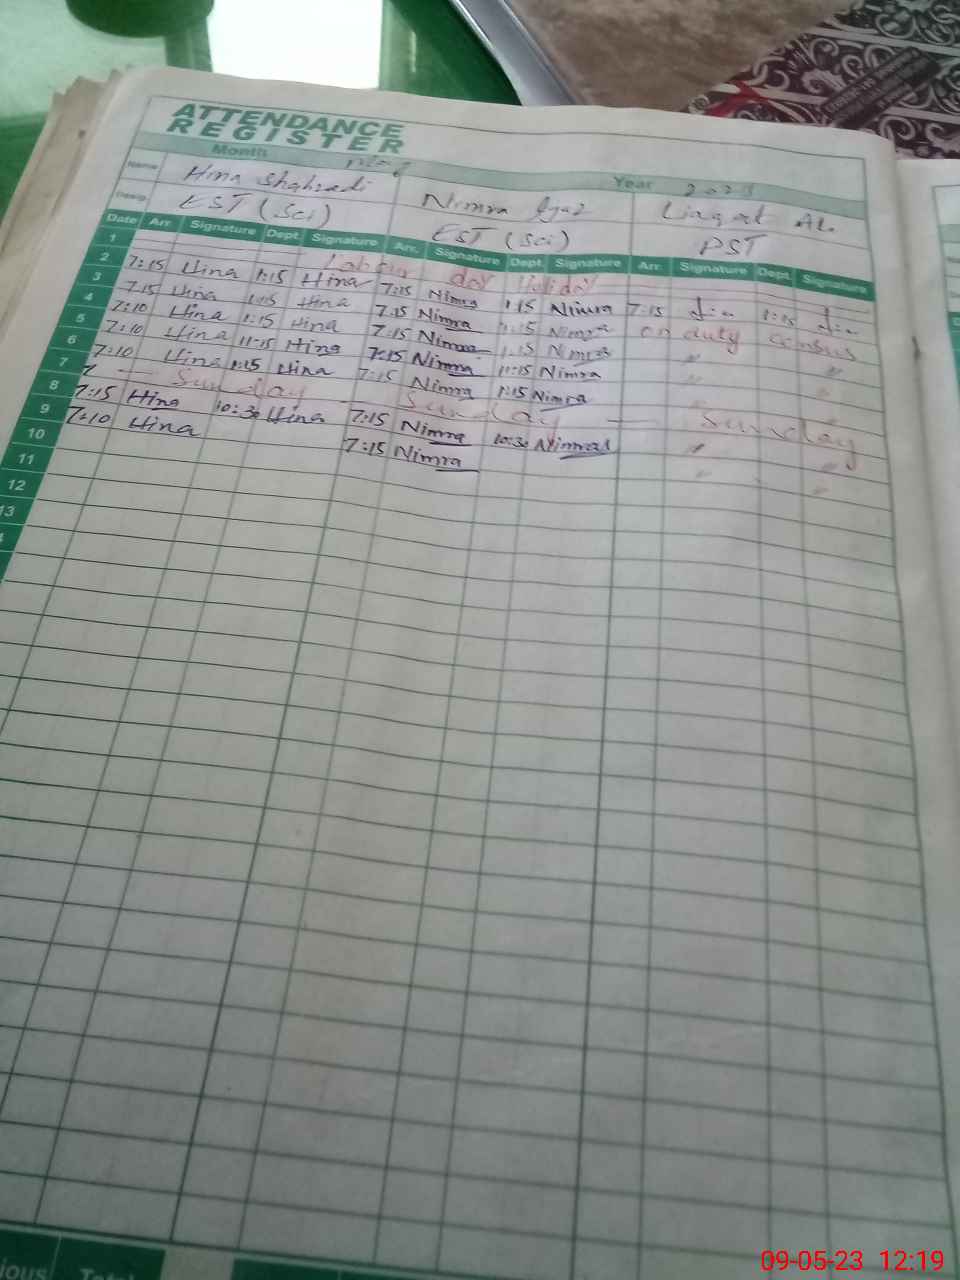 ATTENDANCE
REGISTER
Month May Year 2023
Name Hina Shahzadi Nimra Liaqat Al.
Desig. EST (Sci) EST (Sci) PST
Date Arr. Signature Dept. Signature Arr. Signature Dept. Signature Arr. Signature Dept. Signature
1 Labour day Holiday
2 7:15 Hina 1:15 Hina 7:15 Nimra 1:15 Nimra 7:15 1:15
3 7:15 Hina 1:15 Hina 7:15 Nimra 1:15 Nimra on duty census
4 7:10 Hina 1:15 Hina 7:15 Nimra 1:15 Nimra " "
5 7:10 Hina 11:15 Hina 7:15 Nimra 11:15 Nimra " "
6 7:10 Hina 1:15 Hina 7:15 Nimra 1:15 Nimra " "
7 Sunday Sunday Sunday
8 7:15 Hina 10:30 Hina 7:15 Nimra 10:30 Nimra " "
9 7:10 Hina 7:15 Nimra " "
10
11
12
13
Total
09-05-23 12:19